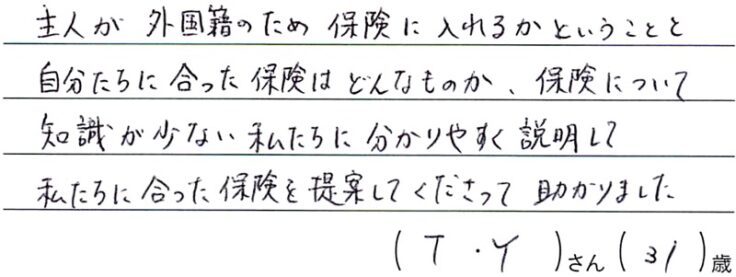 主人が 外国籍のため 保険に 入れるかということと
自分たちに 合った 保険は どんなものか、保険について
知識が少ない 私たちに 分かりやすく 説明して
私たちに 合った 保険を 提案してくださって 助かりました
( T ・Y )さん( 31 )歳